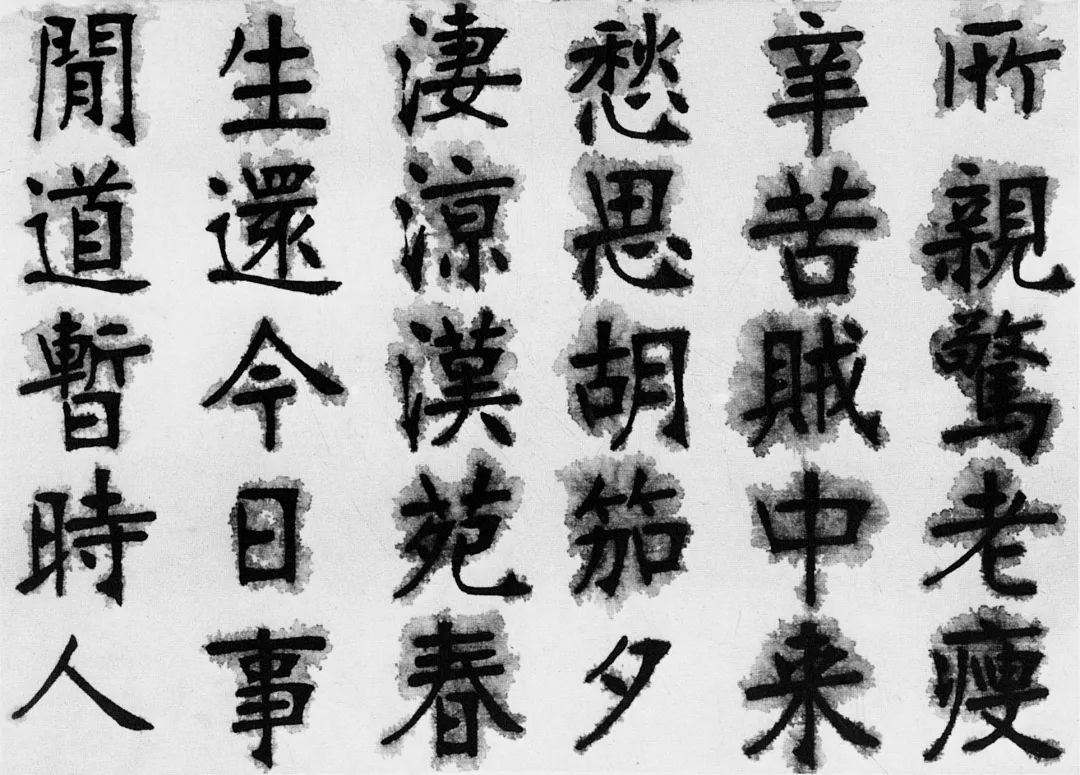 所親驚老瘦
辛苦賊中来
愁思胡笳夕
淒涼漢苑春
生還今日事
閒道暫時人